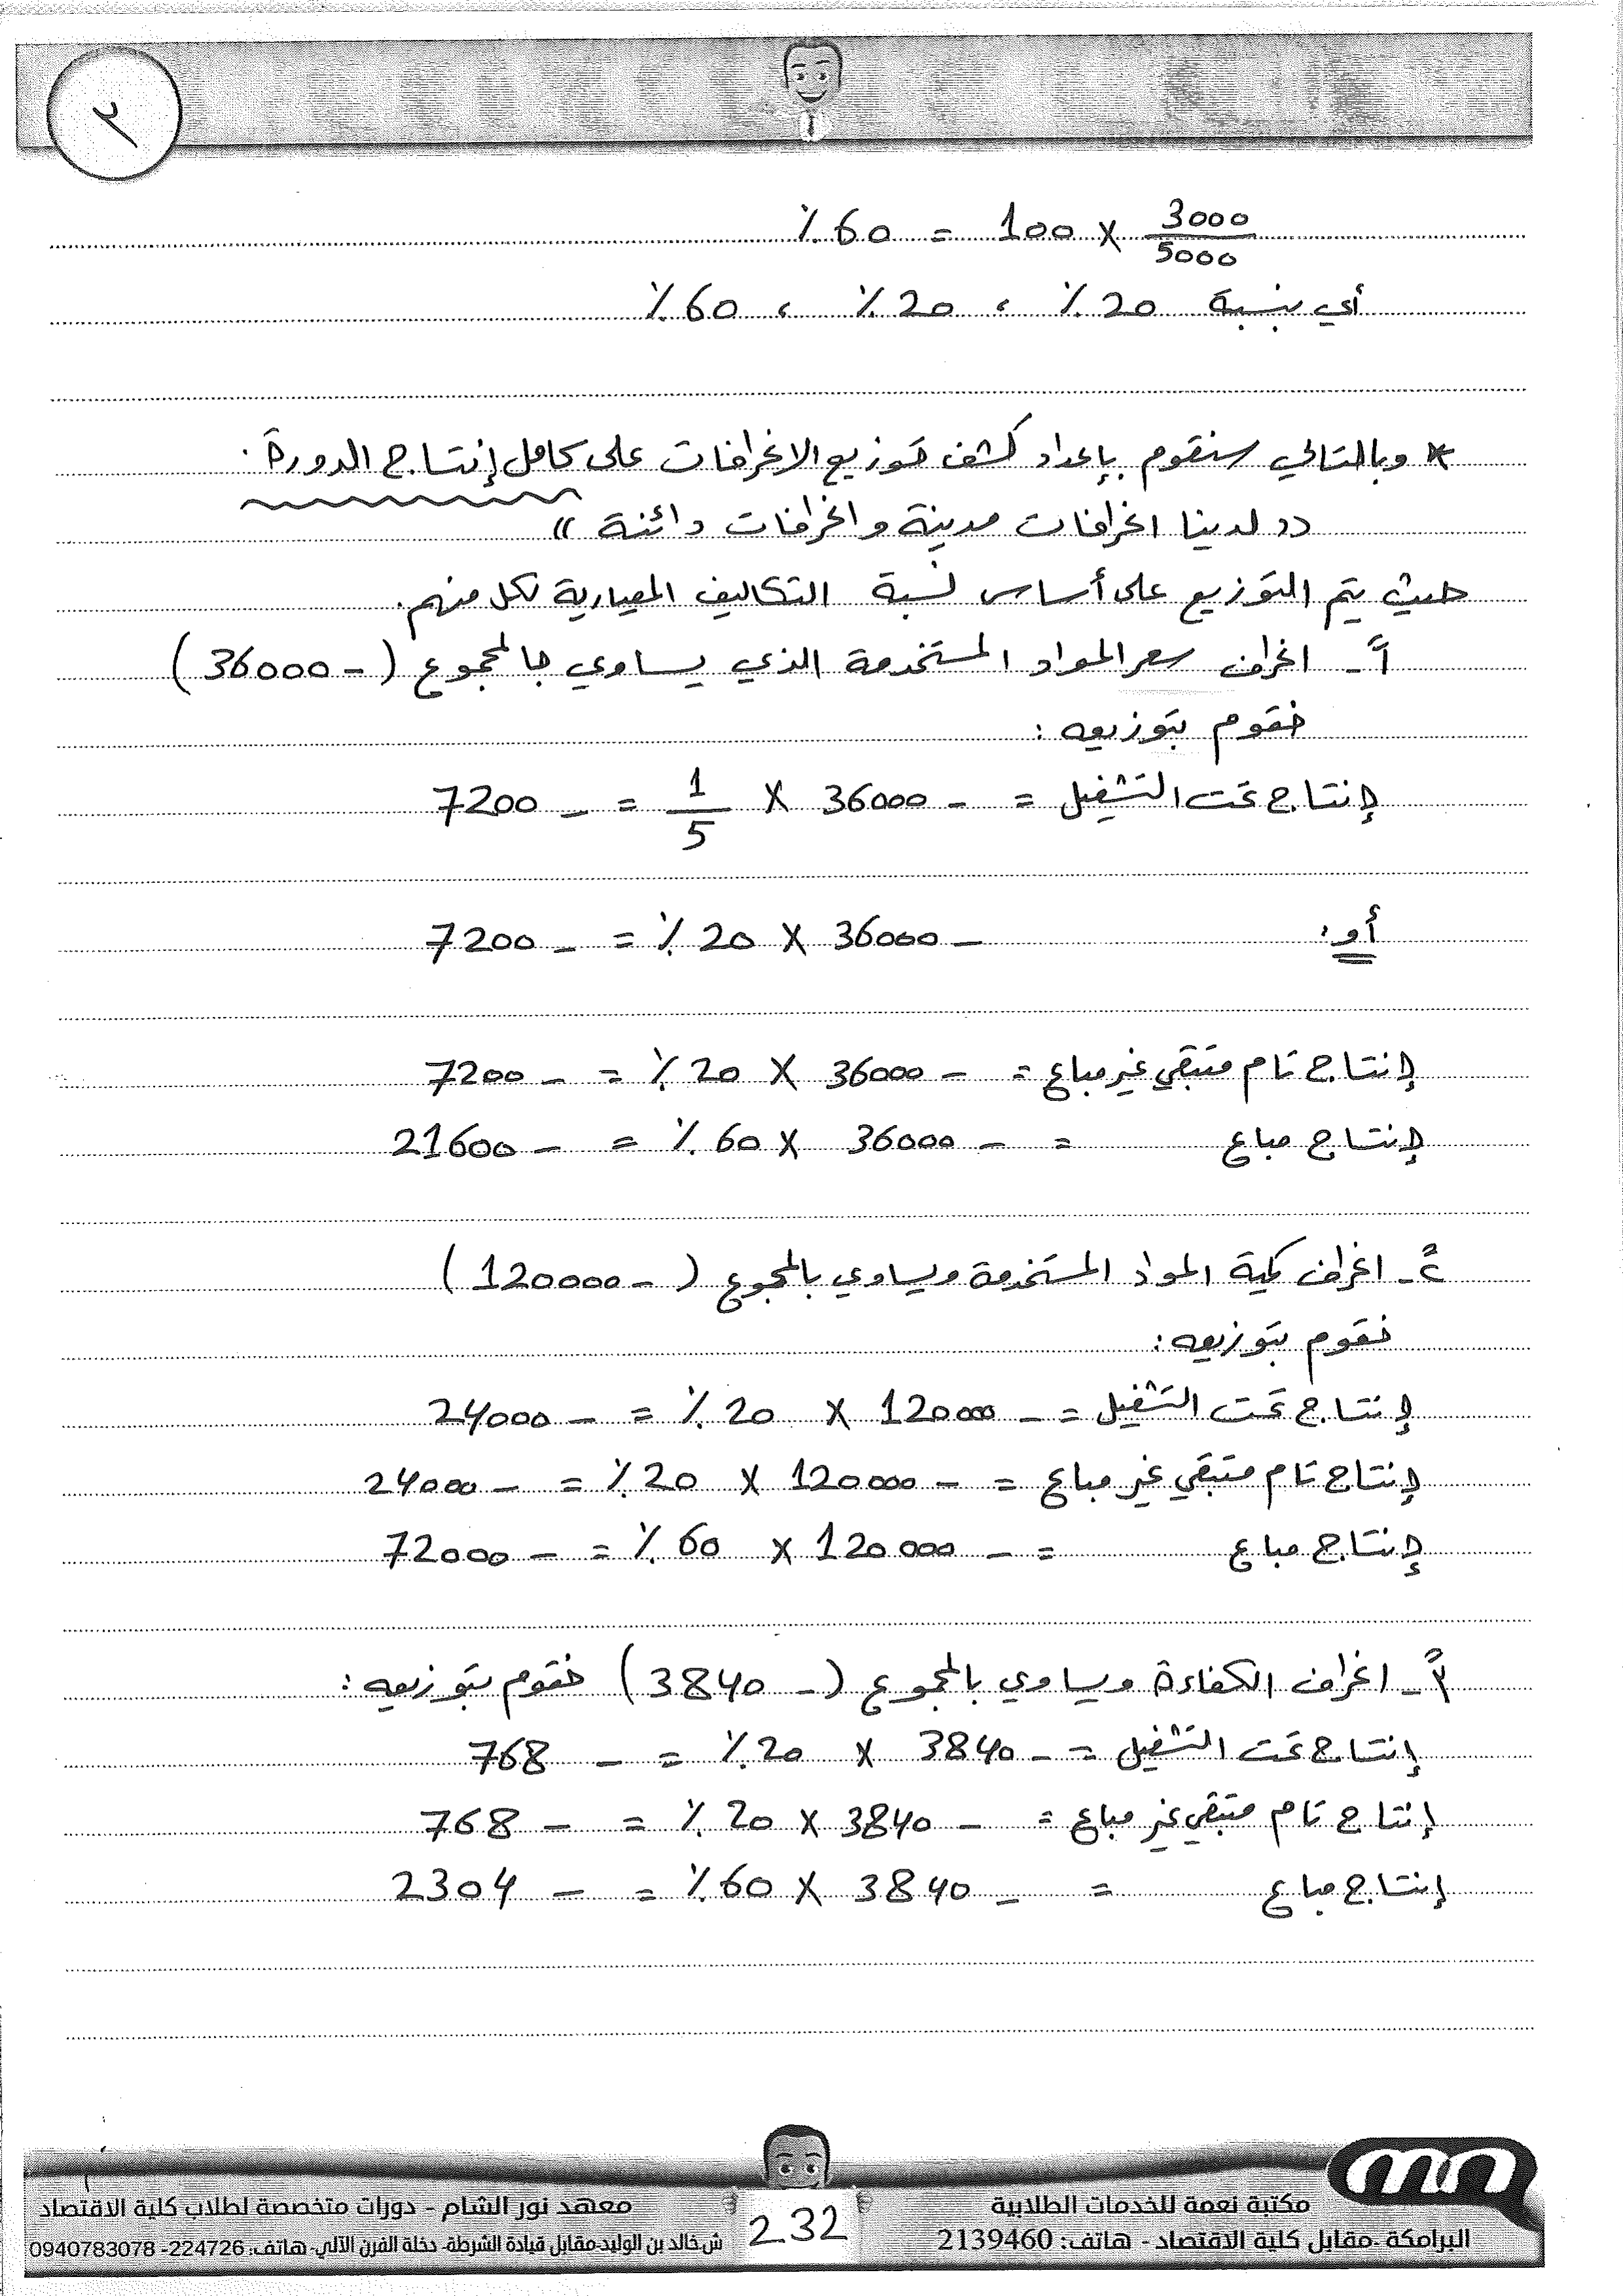 ٢
3000/5000 × 100 = 60 ٪
أي بنسبة 20 ٪ ، 20 ٪ ، 60 ٪
* وبالتالي سنقوم بإعداد كشف توزيع الانحرافات على كامل إنتاج الدورة .
(( لدينا انحرافات مدينة وانحرافات دائنة ))
حيث يتم التوزيع على أساس نسبة التكاليف المعيارية لكل منهم.
اً - انحراف سعر المواد المستخدمة الذي يساوي بالمجموع ( - 36000 )
نقوم بتوزيعه :
إنتاج تحت التشغيل = - 36000 × 1/5 = - 7200
أو : - 36000 × 20 ٪ = - 7200
إنتاج تام متبقي غير مباع = - 36000 × 20 ٪ = - 7200
إنتاج مباع = - 36000 × 60 ٪ = - 21600
٢ً - انحراف كمية المواد المستخدمة ويساوي بالمجموع ( - 120000 )
نقوم بتوزيعه :
إنتاج تحت التشغيل = - 120000 × 20 ٪ = - 24000
إنتاج تام متبقي غير مباع = - 120000 × 20 ٪ = - 24000
إنتاج مباع = - 120000 × 60 ٪ = - 72000
٣ً - انحراف الكفاءة ويساوي بالمجموع ( - 3840 ) نقوم بتوزيعه :
إنتاج تحت التشغيل = - 3840 × 20 ٪ = - 768
إنتاج تام متبقي غير مباع = - 3840 × 20 ٪ = - 768
إنتاج مباع = - 3840 × 60 ٪ = - 2304
مكتبة نعمة للخدمات الطلابية
البرامكة -مقابل كلية الاقتصاد - هاتف: 2139460
232
معهد نور الشام - دورات متخصصة لطلاب كلية الاقتصاد
ش خالد بن الوليد-مقابل قيادة الشرطة- دخلة الفرن الآلي- هاتف: 224726- 0940783078